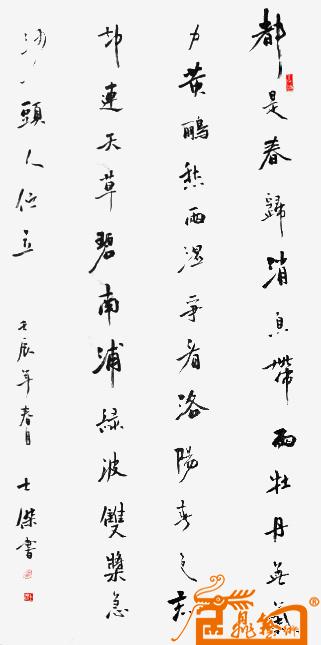 都是春歸消息帶雨牡丹無氣
力黃鸝愁雨濕爭看洛陽春色忘
却連天草碧南浦綠波雙槳急
沙頭人佇立
壬辰年春月 士傑書